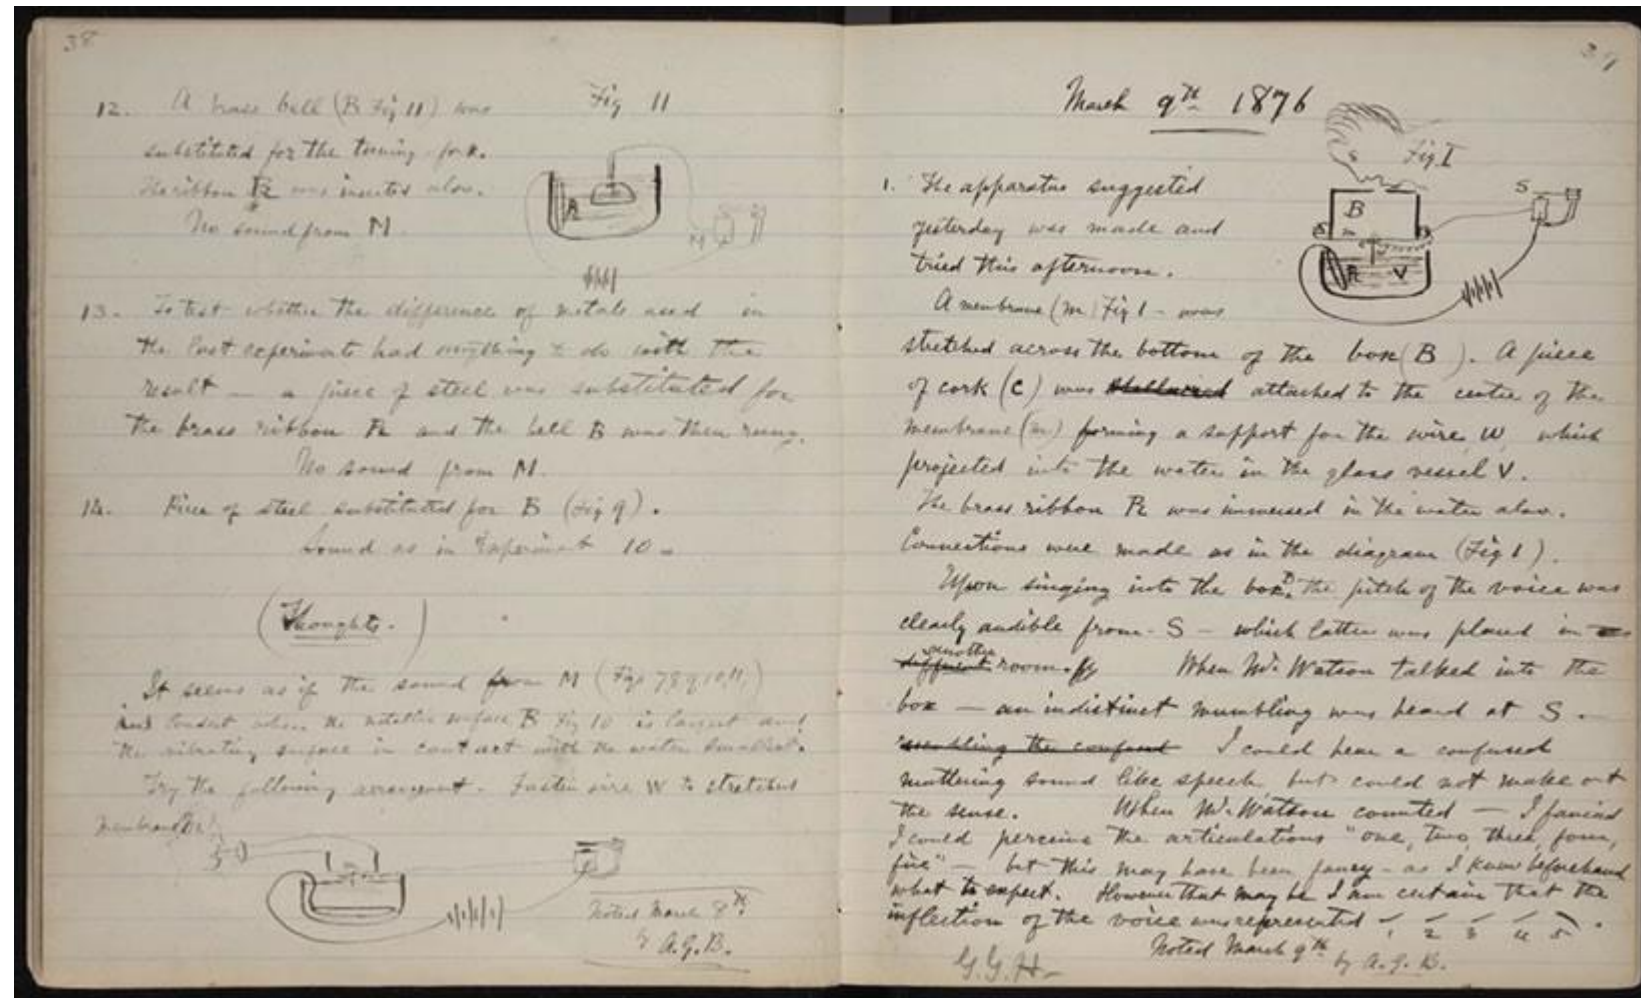 38
12. A brass bell (B Fig 11) was
substituted for the tuning-fork.
The ribbon R was inserted also.
No sound from M.
Fig 11
R
M
13. To test whether the difference of metals used in
the last experiments had anything to do with the
result — a piece of steel was substituted for
the brass ribbon R and the bell B was then rung.
No sound from M.
14. Piece of steel substituted for B (Fig 9).
Sound as in Experiment 10 —
(Thoughts.)
It seems as if the sound from M (Figs 7 8 9, 10, 11,)
was loudest when the metallic surface B Fig 10 is largest and
the vibrating surface in contact with the water smallest.
Try the following arrangement. Fasten wire W to stretched
membrane
Noted March 8th
by A.G.B.
39
March 9th 1876
Fig 1
B
m
S
R
V
1. The apparatus suggested
yesterday was made and
tried this afternoon.
A membrane (m) Fig 1 - was
stretched across the bottom of the box (B). A piece
of cork (C) was attached to the centre of the
membrane (m) forming a support for the wire W, which
projected into the water in the glass vessel V.
The brass ribbon R was immersed in the water also.
Connections were made as in the diagram (Fig 1).
Upon singing into the box, the pitch of the voice was
clearly audible from - S - which latter was placed in
different another room. When Mr. Watson talked into the
box — an indistinct mumbling was heard at S.
resembling the confused I could hear a confused
muttering sound like speech but could not make out
the sense. When Mr. Watson counted — I fancied
I could perceive the articulations "one, two, three, four,
five" — but this may have been fancy - as I knew beforehand
what to expect. However that may be I am certain that the
inflection of the voice was represented
1 2 3 4 5 .
Noted March 9th
by A.G.B.
G.G.H —